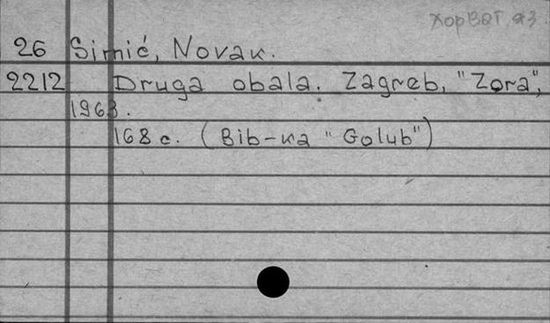 хорват. яз.
26 Simić, Novak.
2212 Druga obala. Zagreb, "Zora",
1963.
168 с. (Bib-ка "Golub")